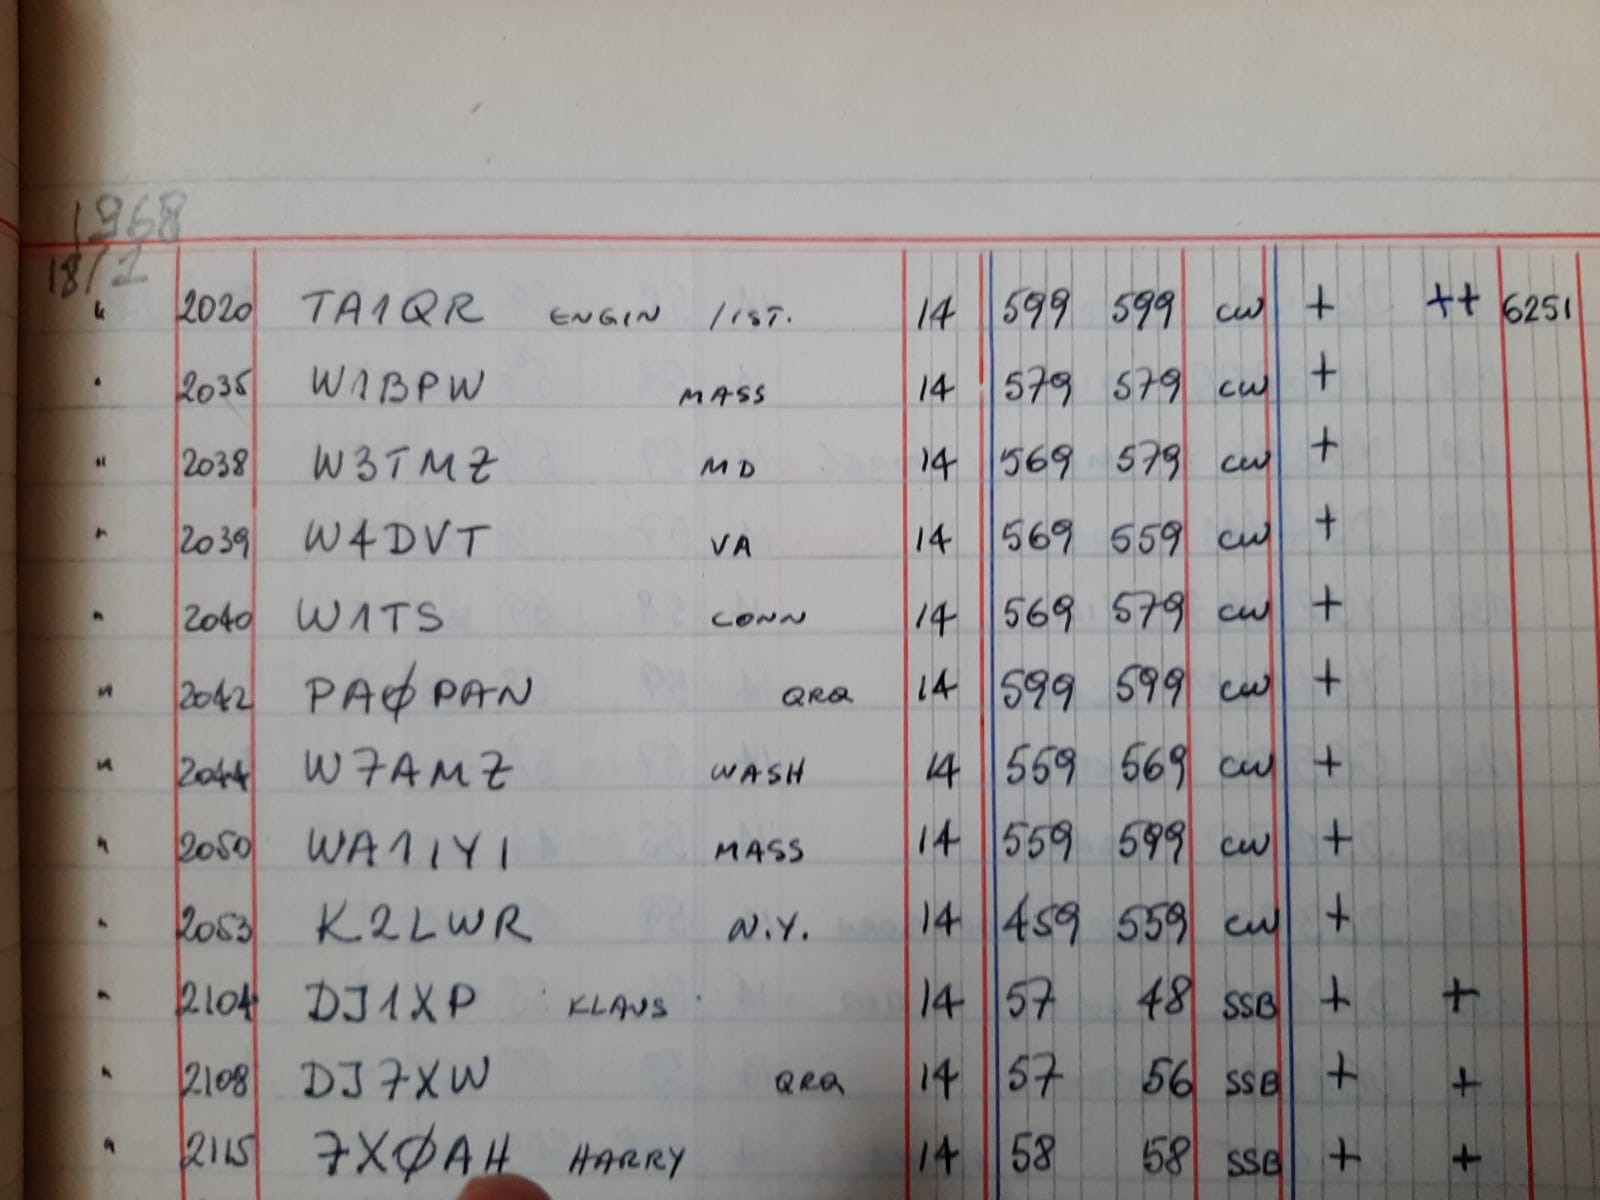 1968
18/1
" 2020 TA1QR ENGIN /IST. 14 599 599 CW + ++ 6251
" 2035 W1BPW MASS 14 579 579 CW +
" 2038 W3TMZ MD 14 569 579 CW +
" 2039 W4DVT VA 14 569 559 CW +
" 2040 W1TS CONN 14 569 579 CW +
" 2042 PAØPAN QRQ 14 599 599 CW +
" 2044 W7AMZ WASH 14 559 569 CW +
" 2050 WA1IYI MASS 14 559 599 CW +
" 2053 K2LWR N.Y. 14 459 559 CW +
" 2104 DJ1XP KLAUS 14 57 48 SSB + +
" 2108 DJ7XW QRQ 14 57 56 SSB + +
" 2115 7XØAH HARRY 14 58 58 SSB + +